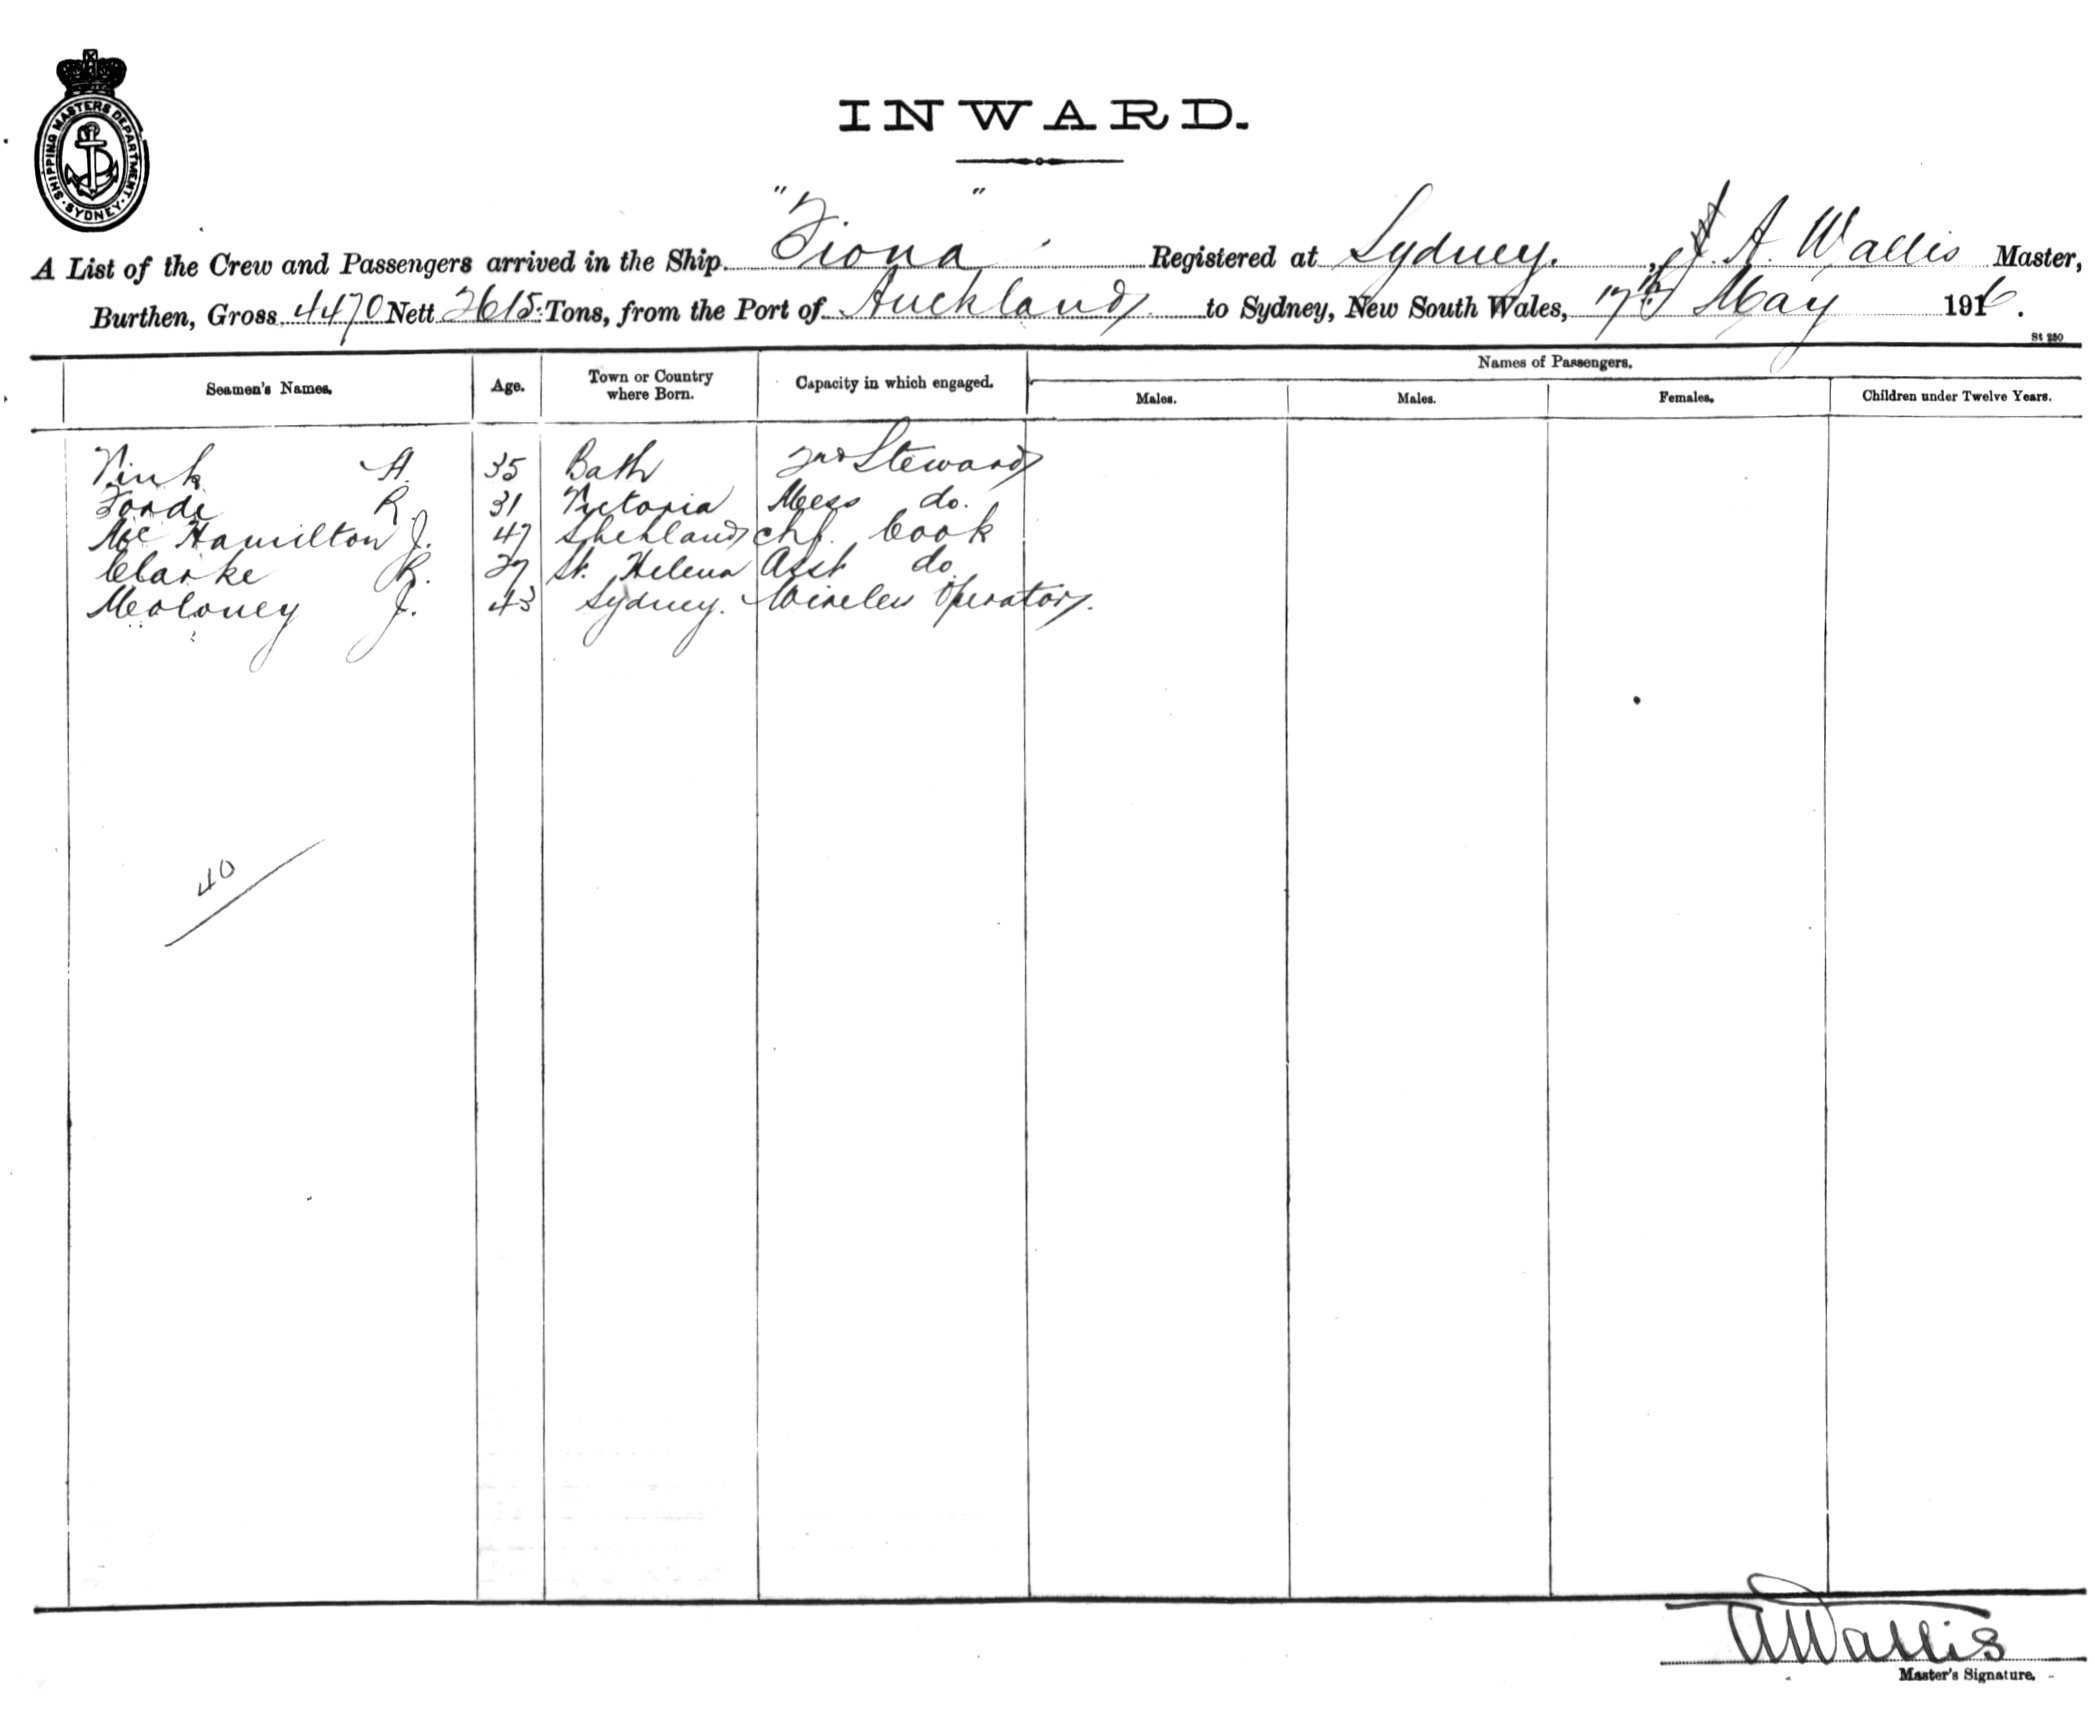 SHIPPING MASTERS DEPARTMENT · SYDNEY ·
INWARD.
A List of the Crew and Passengers arrived in the Ship "Fiona" Registered at Sydney. , A. Wallis Master,
Burthen, Gross 4470 Nett 2615 Tons, from the Port of Auckland to Sydney, New South Wales, 17th May 1916.
St 250
Names of Passengers.
Seamen's Names. Age. Town or Country where Born. Capacity in which engaged. Males. Males. Females. Children under Twelve Years.
A. 35 Bath 2nd Steward
Forde R 31 Victoria Mess do.
Mc Hamilton J. 47 Shetland Chf. Cook
Clarke R. 27 St. Helena Asst do.
Moloney J. 43 Sydney. Wireless Operator.
40
A Wallis
Master's Signature.